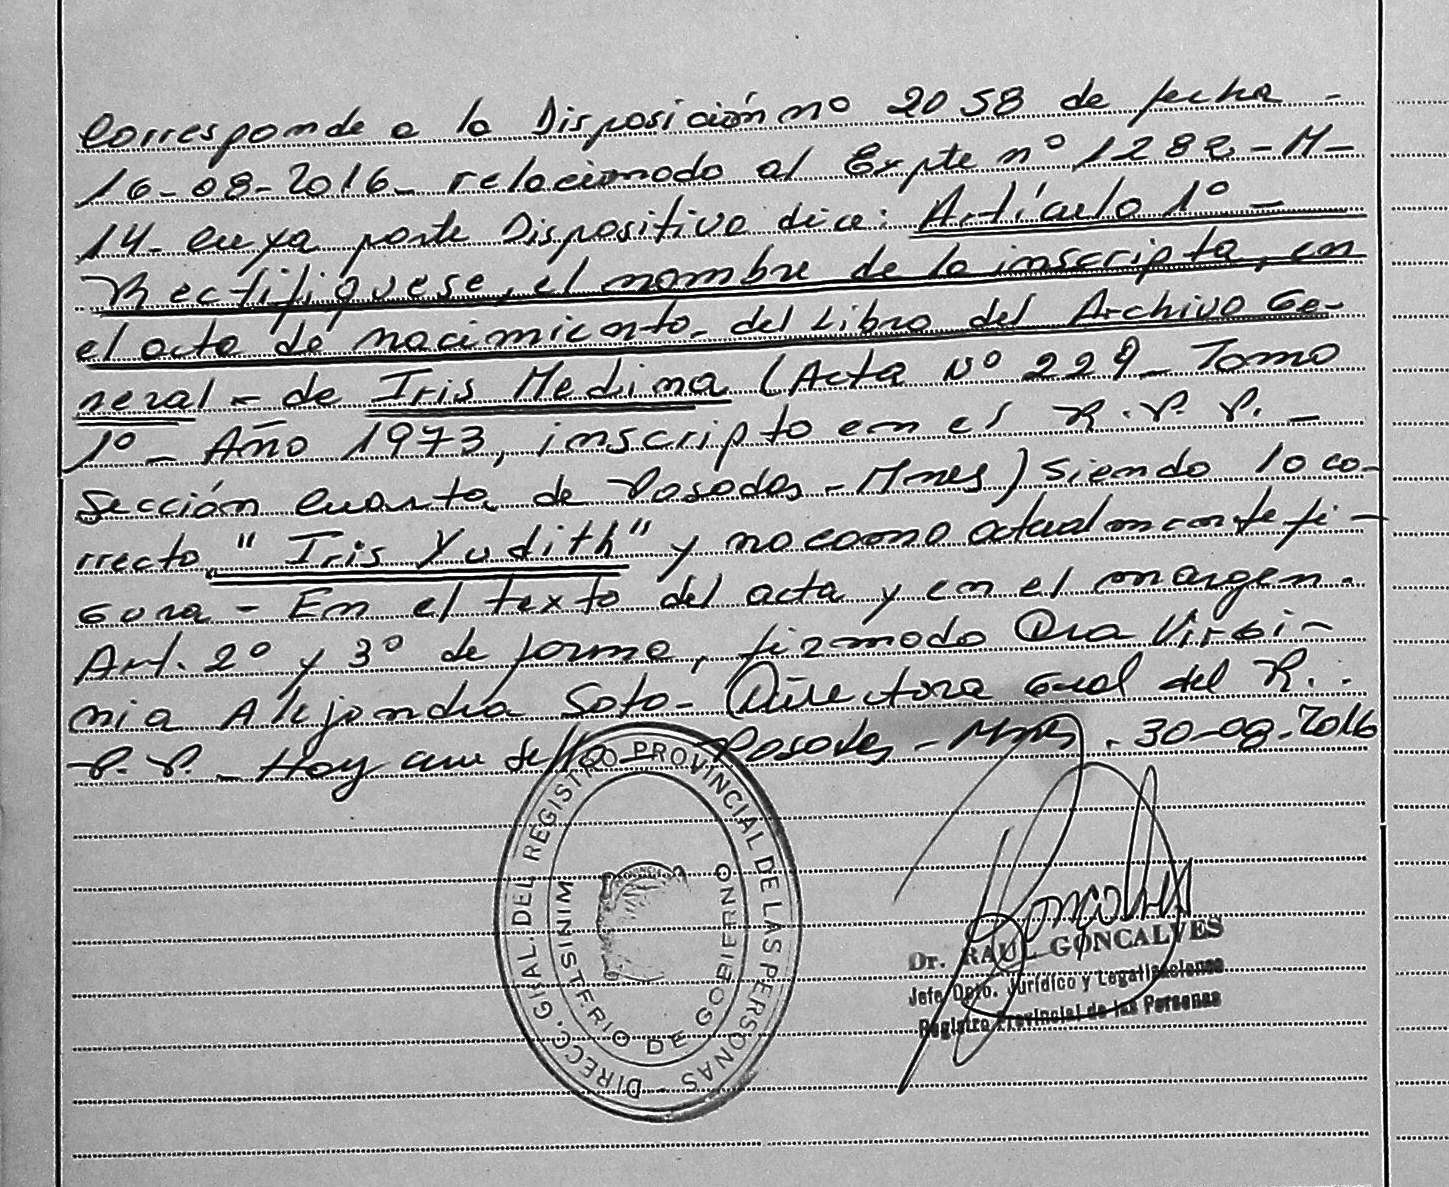 Corresponde a la Disposición nº 2058 de fecha -
16-08-2016- relacionado al Expte nº 1282-M-
14- cuya parte Dispositiva dice: Artículo 1º -
Rectifíquese, el nombre de la inscripta, en
el acta de nacimiento- del Libro del Archivo Ge-
neral - de Iris Medina (Acta Nº 229- Tomo
1º - Año 1973, inscripto en el R.P.P. -
Sección Cuarta de Posadas - Mnes) siendo lo co-
rrecto " Iris Yudith" y no como actualmente fi-
gura - En el texto del acta y en el margen.
Art. 2º y 3º de forma, firmado Dra Virgi-
nia Alejandra Soto- Directora Gral del R.
P.P. - Hay un sello - Posadas - Mnes. 30-08-2016
DIRECC. GRAL. DEL REGISTRO PROVINCIAL DE LAS PERSONAS -
MINISTERIO DE GOBIERNO
Goncalves
Dr. RAUL GONCALVES
Jefe Dpto. Jurídico y Legalizaciones
Registro Provincial de las Personas